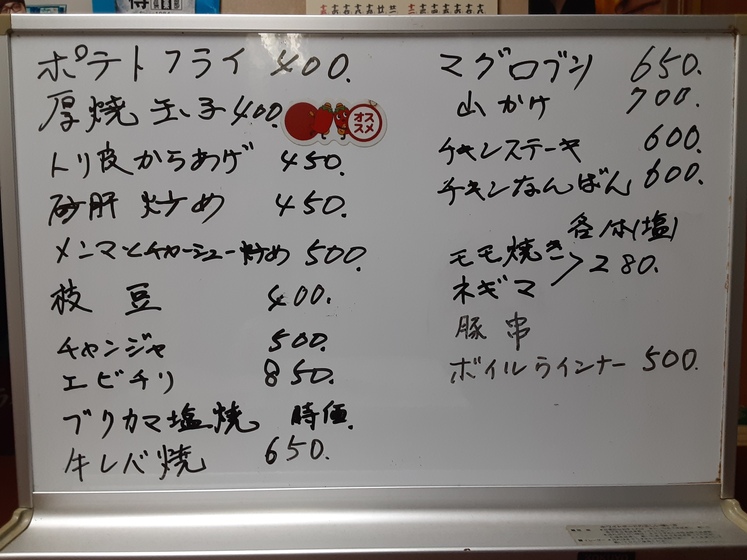 ポテトフライ 400.
厚焼玉子 400.
オススメ
トリ皮からあげ 450.
砂肝炒め 450.
メンマとチャーシュー炒め 500.
枝豆 400.
チャンジャ 500.
エビチリ 850.
ブリカマ塩焼 時価.
牛レバ焼 650.
マグロブツ 650.
山かけ 700.
チキンステーキ 600.
チキンなんばん 600.
各1本(塩)
モモ焼き
ネギマ > 280.
豚串
ボイルウインナー 500.